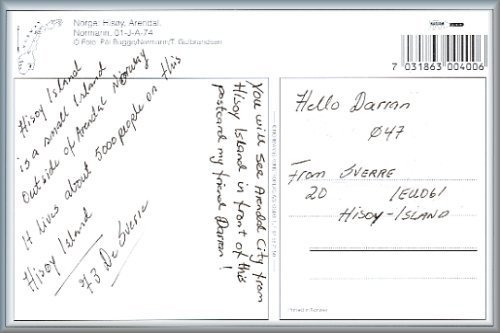 Norge: Hisøy, Arendal.
Normann, 01-J-A-74
© Foto: Pål Bugge/Normann/T. Gulbrandsen
7 031863 004006
Hisoy Island
is a small Island
outside of Arendal Norway
It lives about 5000 people on this
Hisoy Island
73 De Sverre
You will see Arendal City from
Hisoy Island in front of this
postcard my friend Darran!
Hello Darran
Ø47
From SVERRE
20 IEUD61
HISOY-ISLAND